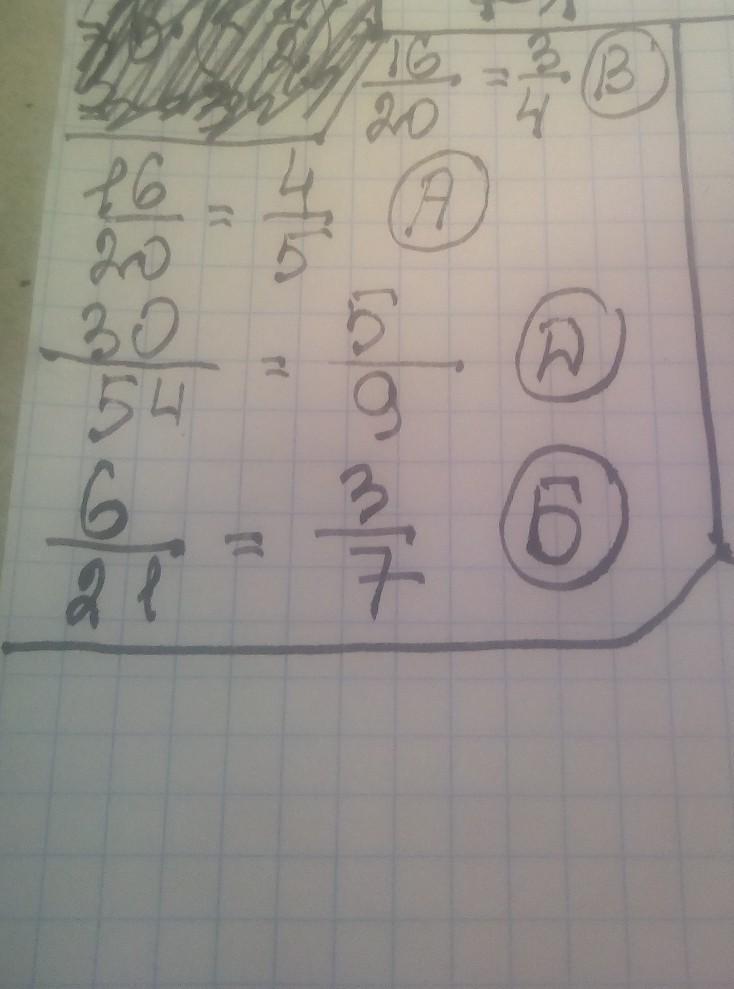 16/20 = 3/4 В
16/20 = 4/5 А
30/54 = 5/9 Д
6/21 = 3/7 Б